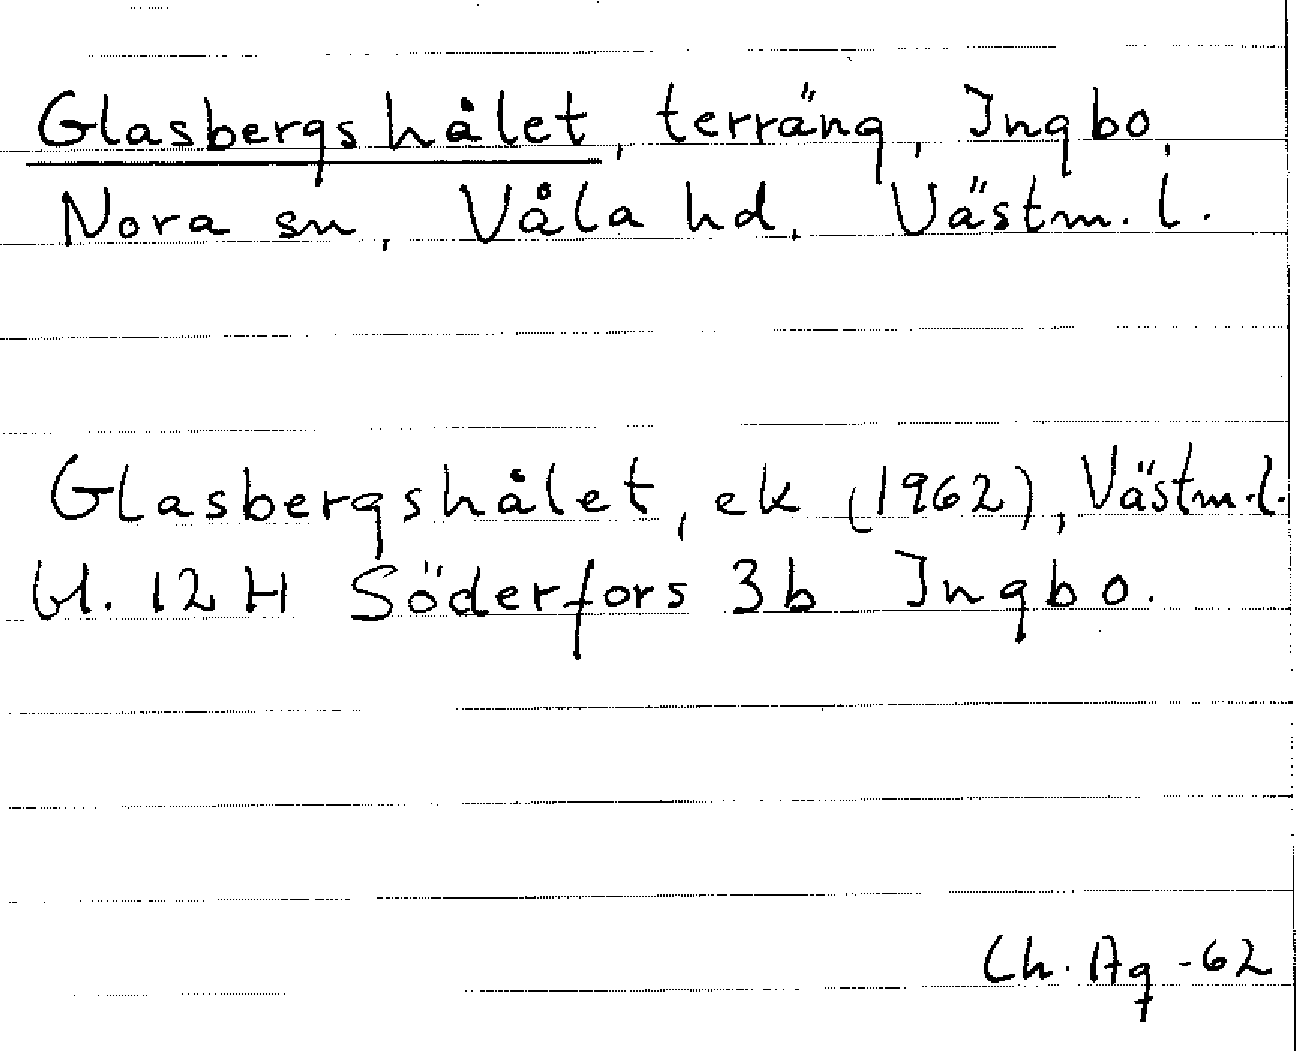 Glasbergshålet, terräng, Ingbo,
Nora sn, Våla hd, Västm. l.
Glasbergshålet, ek (1962), Västm.l.
bl. 12 H Söderfors 3b Ingbo.
Ch. Ag -62